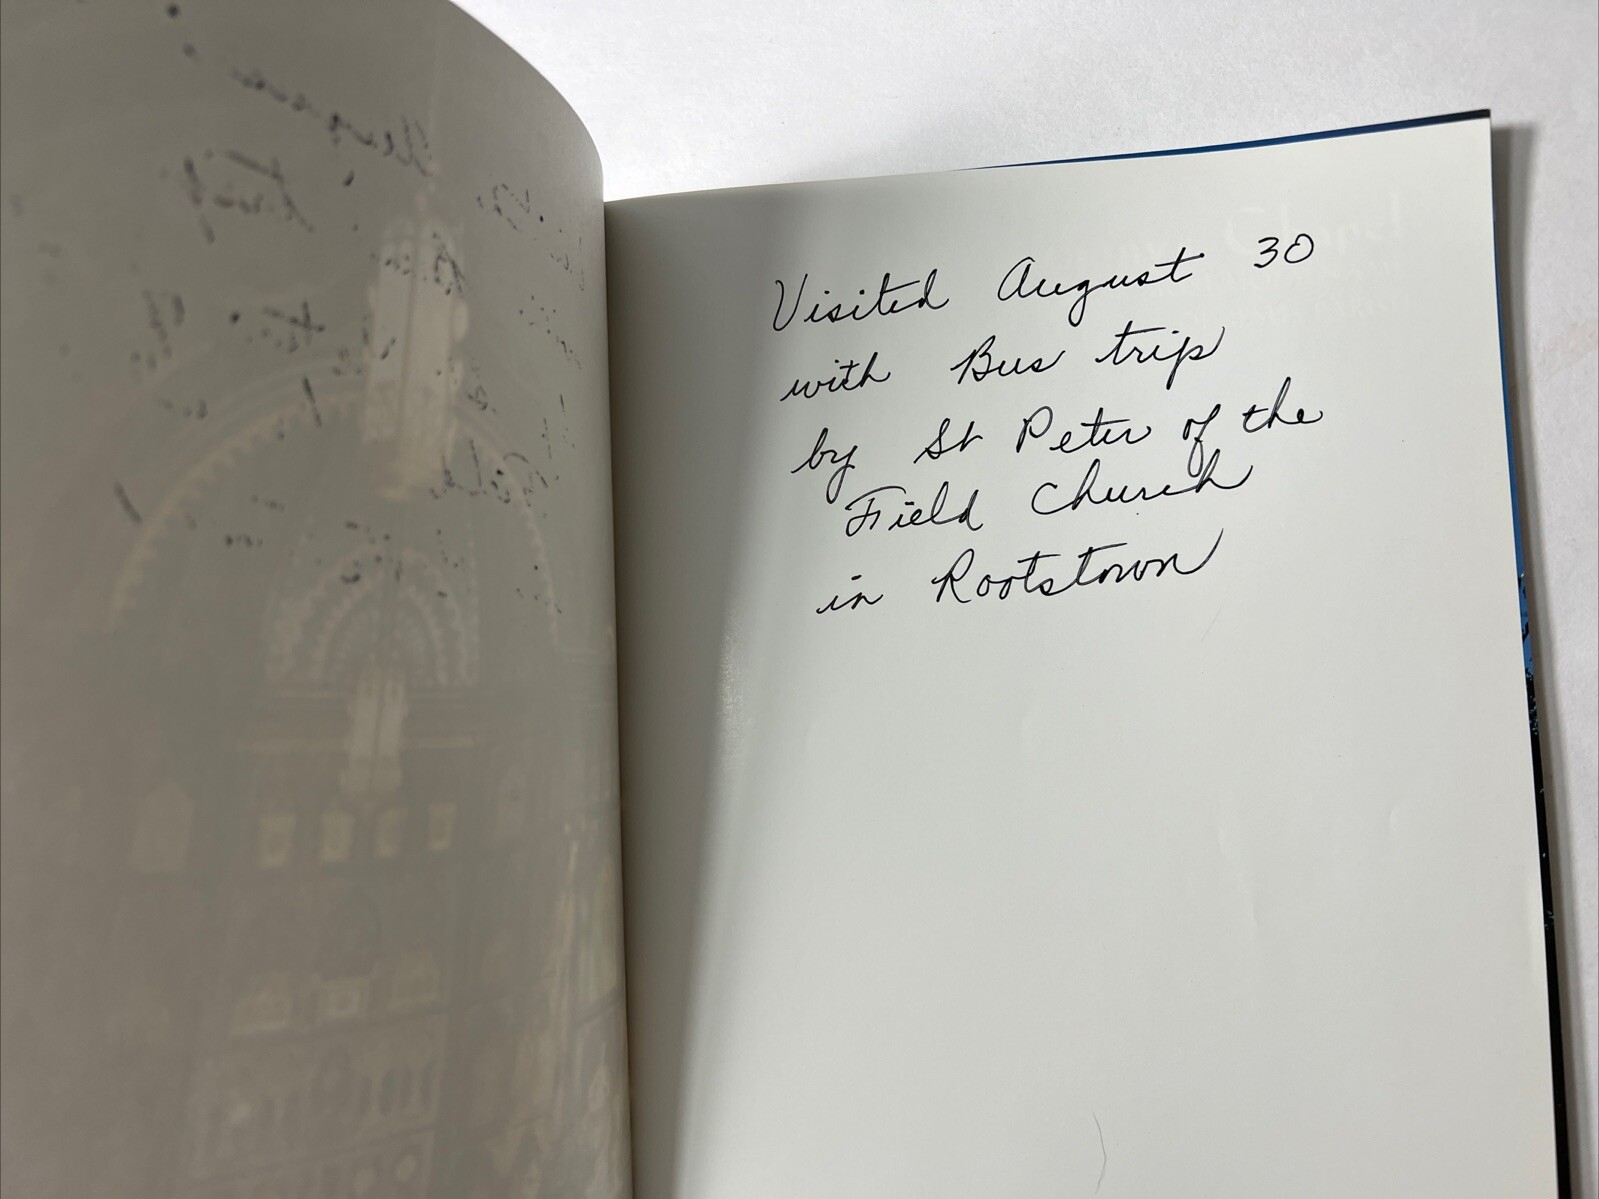 Visited August 30
with Bus trip
by St Peter of the
Field Church
in Rootstown